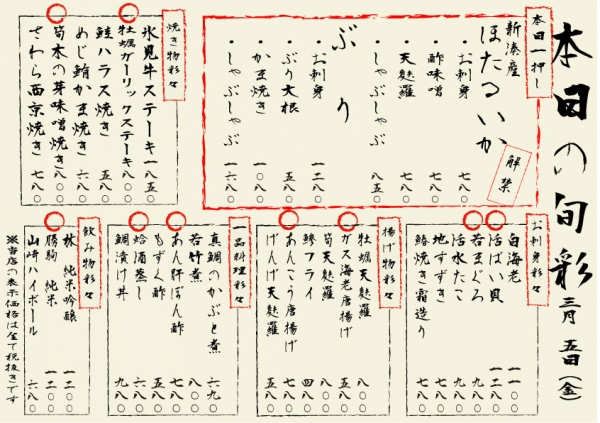 本日の旬彩 三月 五日(金)
本日一押し
新湊産
ほたるいか
解禁
・お刺身 七八〇
・酢味噌 七八〇
・天麩羅 七八〇
・しゃぶしゃぶ 八五〇
ぶり
・お刺身 一二八〇
・ぶり大根 五八〇
・かま焼き 一〇八〇
・しゃぶしゃぶ 一六八〇
焼き物彩々
氷見牛ステーキ 一八五〇
牡蠣ガーリックステーキ 八八〇
鮭ハラス焼き 五八〇
めじ鮪かま焼き 六八〇
筍木の芽味噌焼き 八八〇
さわら西京焼き 七八〇
お刺身彩々
白海老 一一〇〇
活ばい貝 一二八〇
若まぐろ 九八〇
活水たこ 九八〇
地すずき 七八〇
鰆焼き霜造り 七八〇
揚げ物彩々
牡蠣天麩羅 八〇〇
ガス海老唐揚げ 五八〇
筍天麩羅 八八〇
鯵フライ 四八〇
あんこう唐揚げ 七八〇
げんげ天麩羅 五八〇
一品料理彩々
真鯛のかぶと煮 六九〇
若竹煮 七八〇
あん肝ぽん酢 七八〇
もずく酢 五八〇
蛤酒蒸し 六八〇
鯛漬け丼 九八〇
飲み物彩々
林 純米吟醸 一二〇〇
勝駒 純米 一二〇〇
山崎ハイボール 六八〇
※当店の表示価格は全て税抜きです